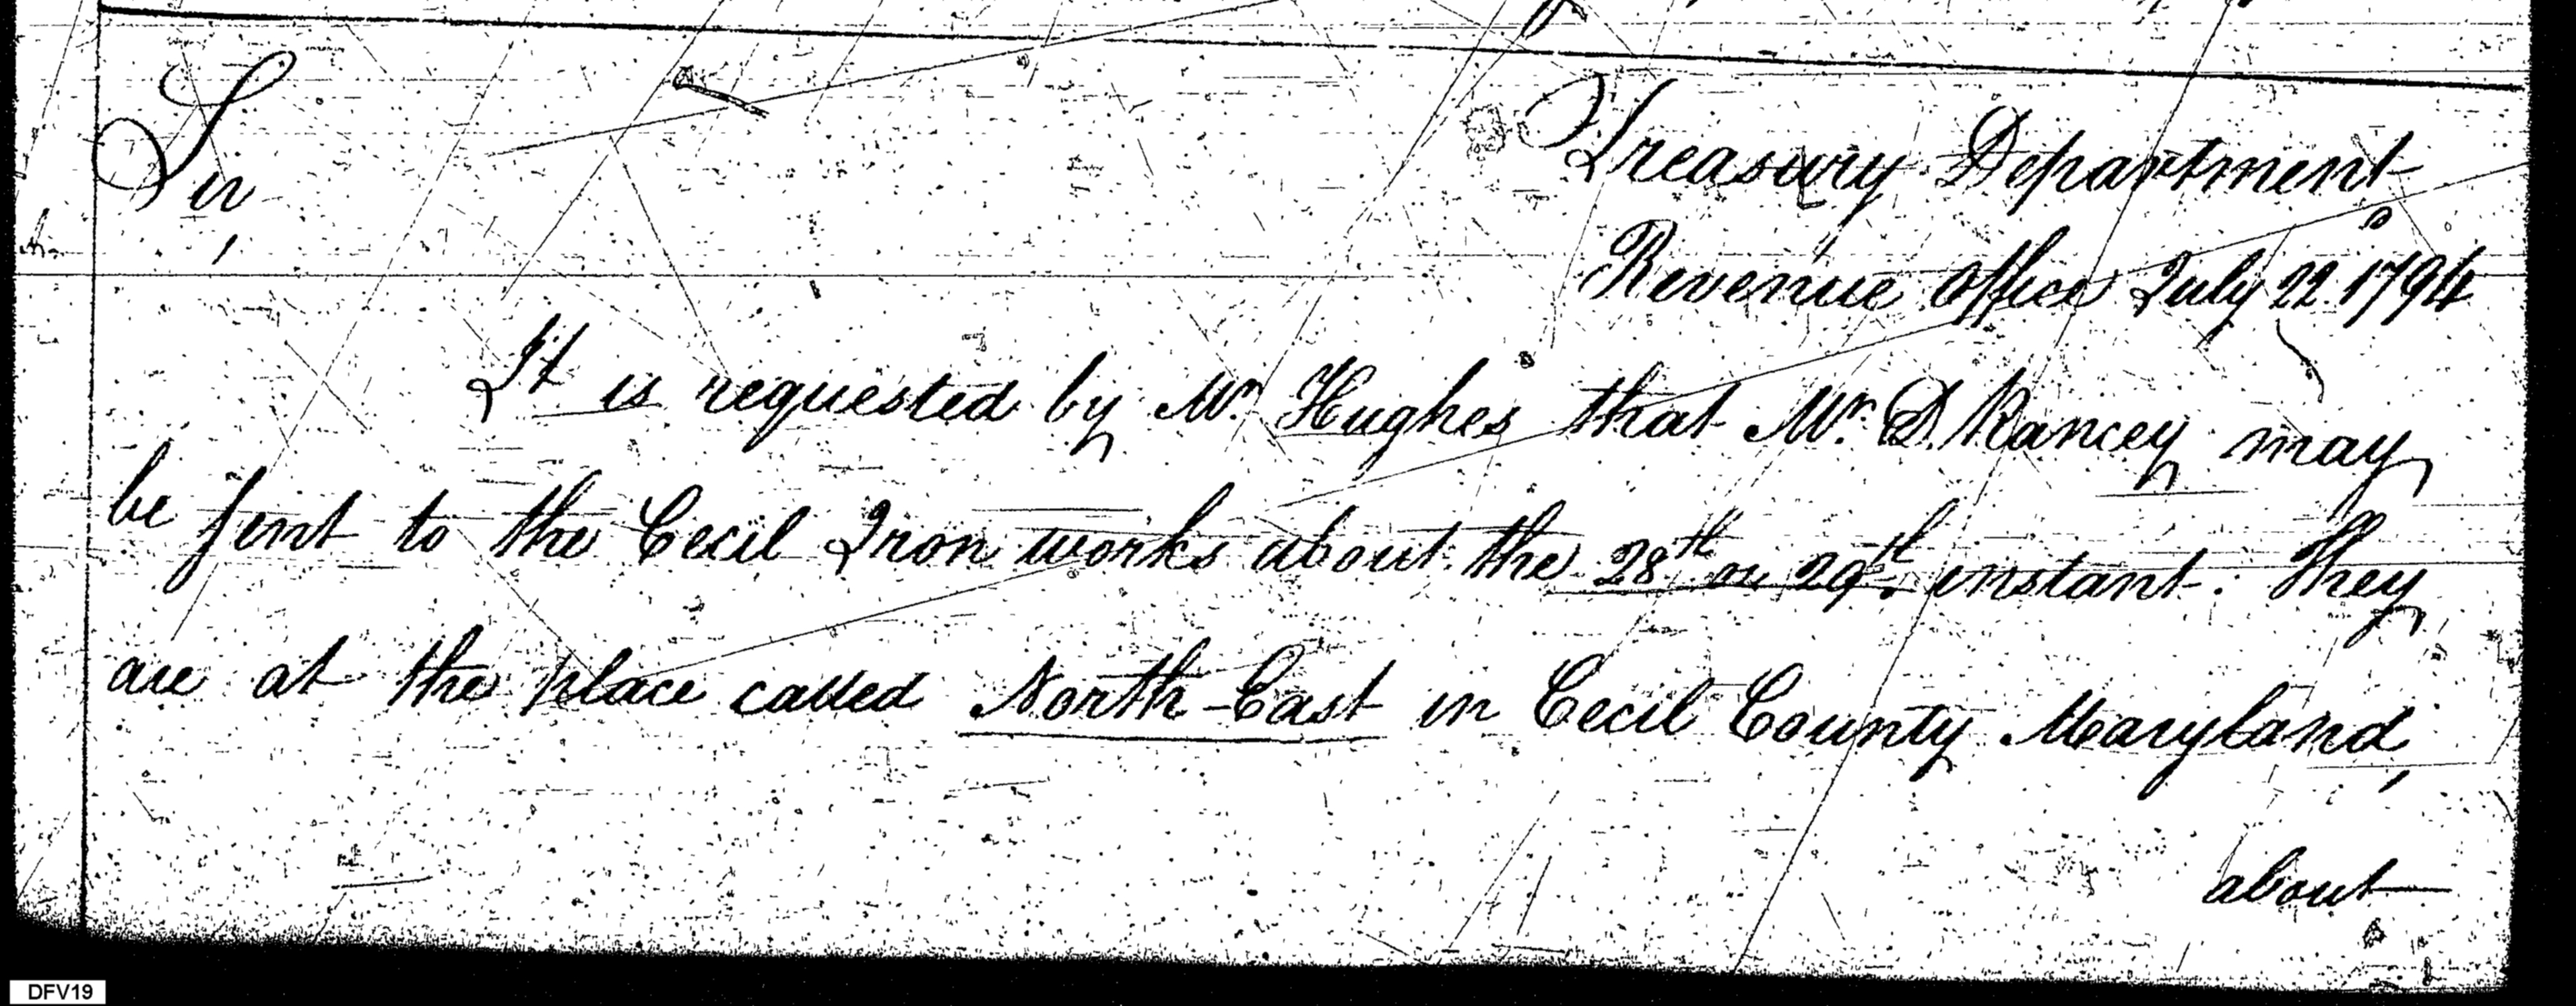 Treasury Department
Sir
,
Revenue Office July 22 1794
It is requested by Mr. Hughes that Mr. D. Rancey may
be sent to the Cecil Iron works about the 28th or 29th. instant. They
are at the place called North-East in Cecil County Maryland,
about
DFV19